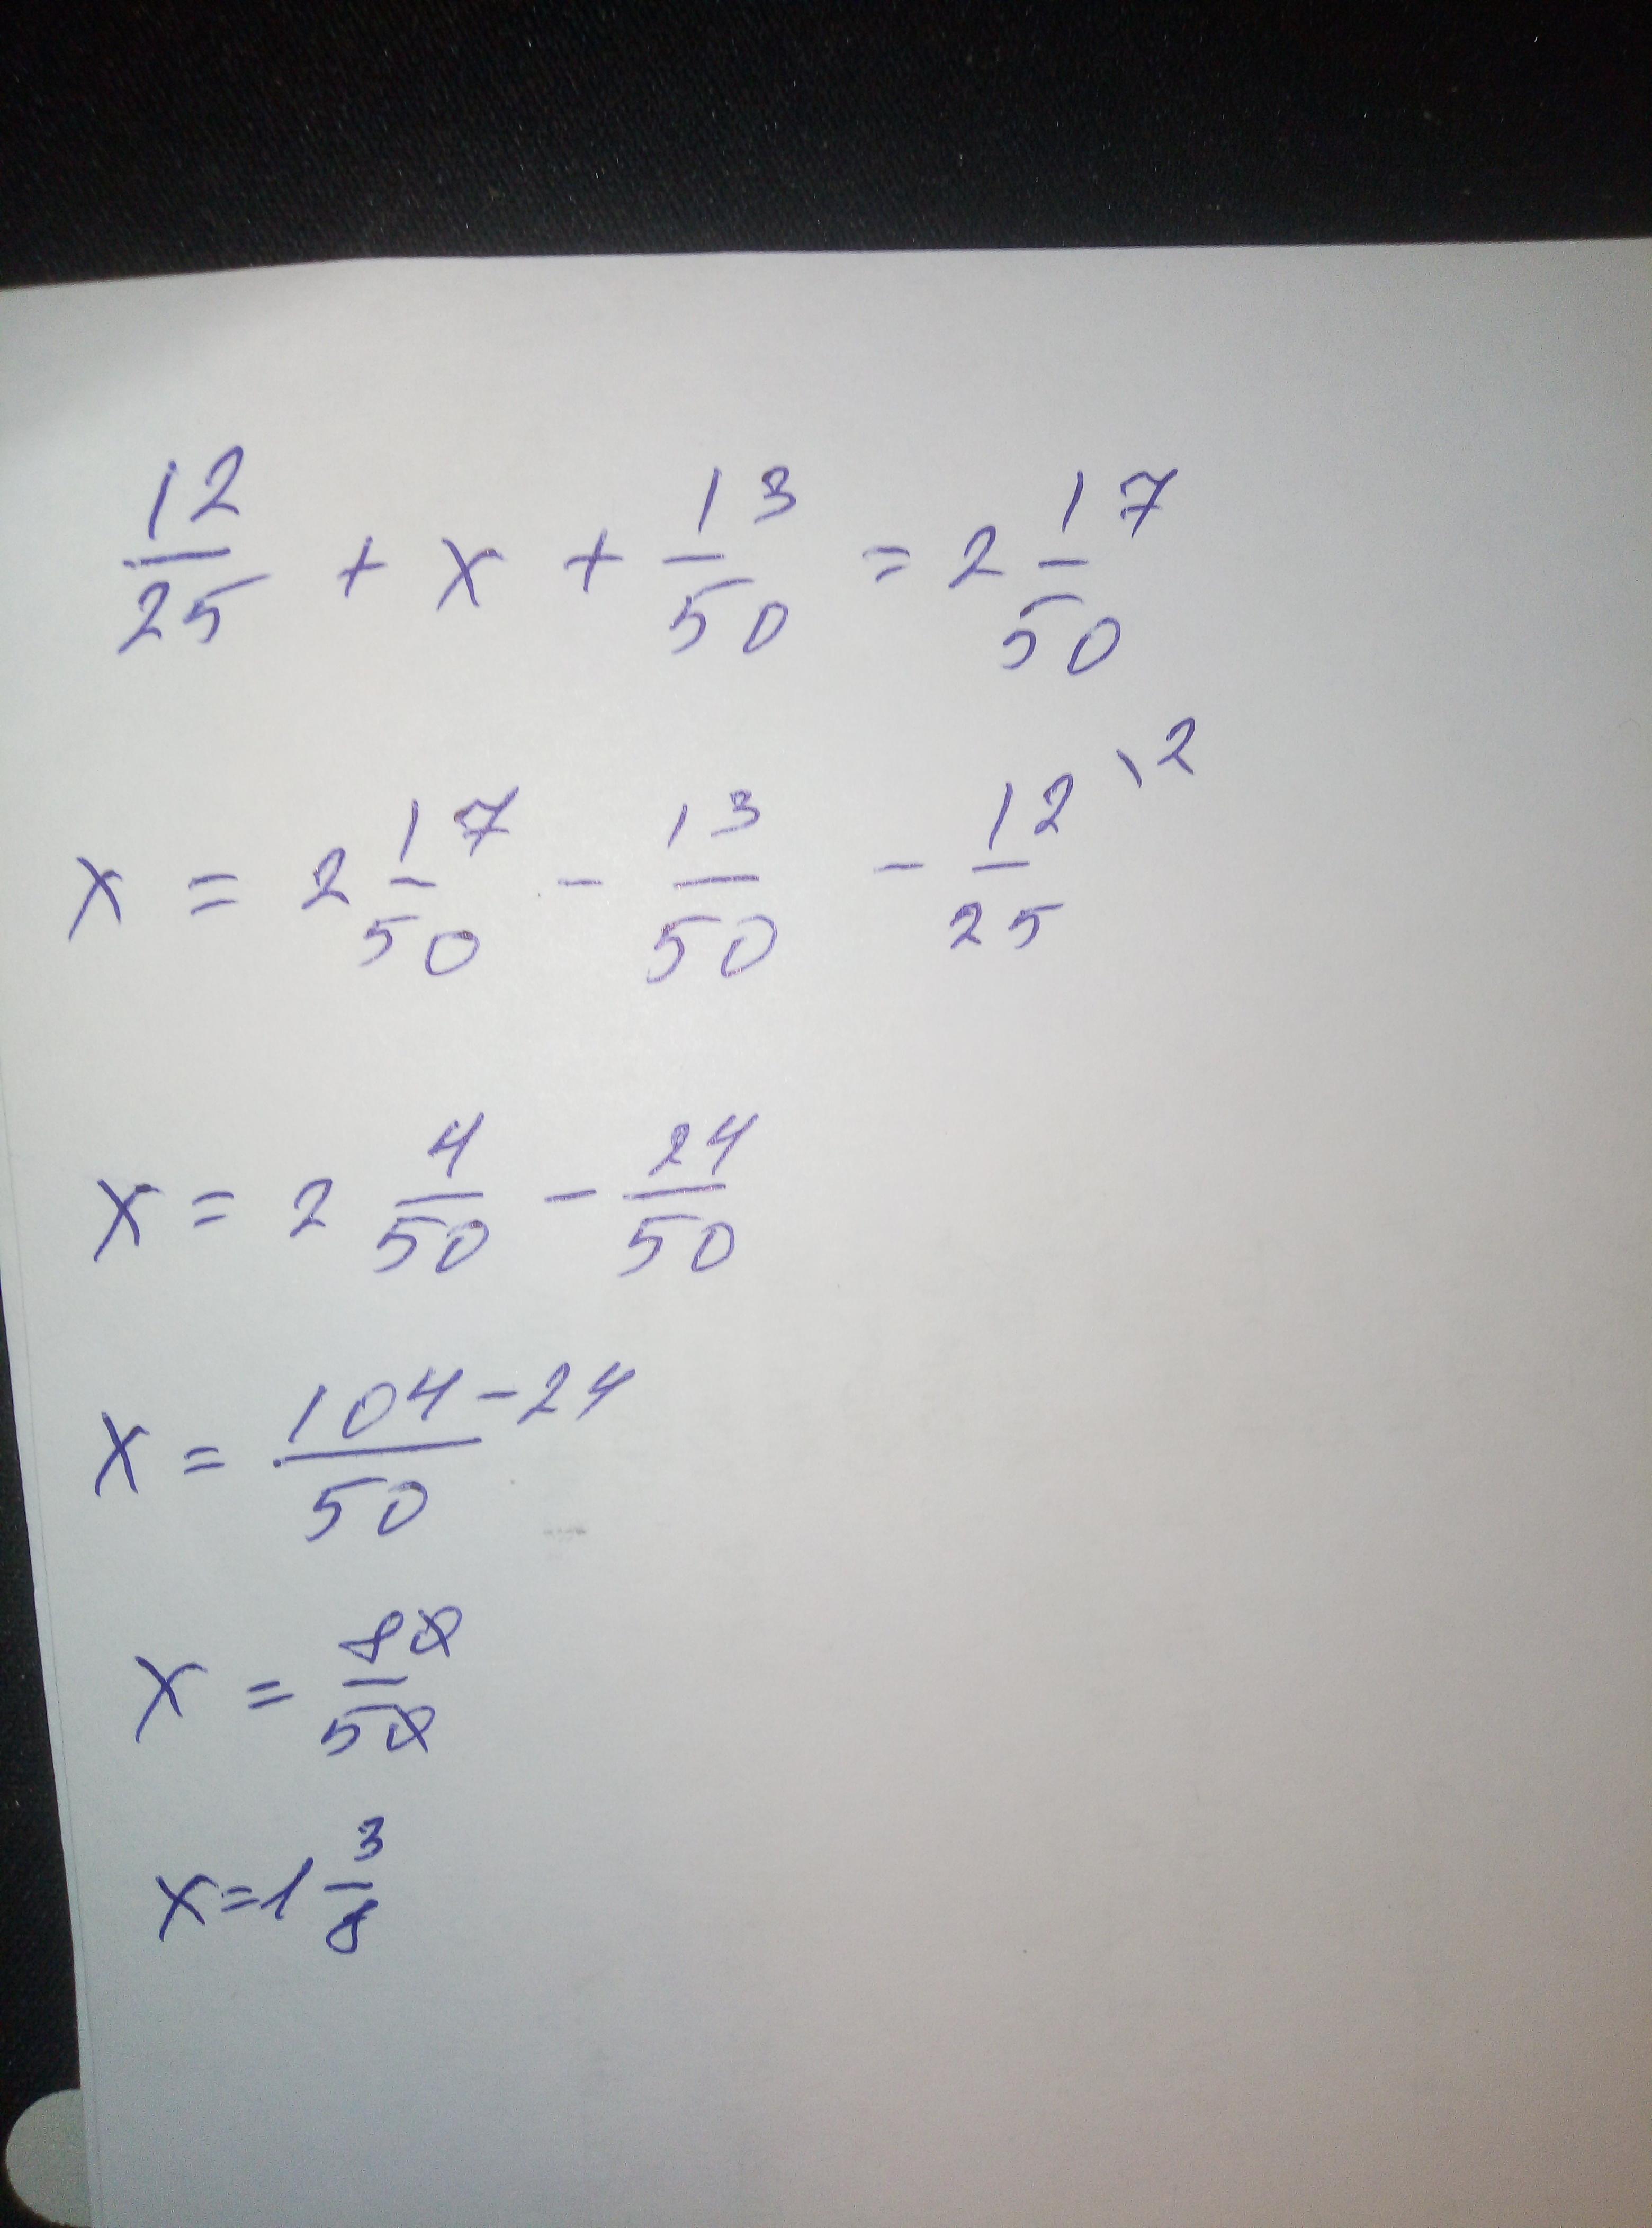 12/25 + x + 13/50 = 2 17/50
x = 2 17/50 - 13/50 - 12/25 \2
x = 2 4/50 - 24/50
x = 104-24/50
x = 80/50
x=1 3/8